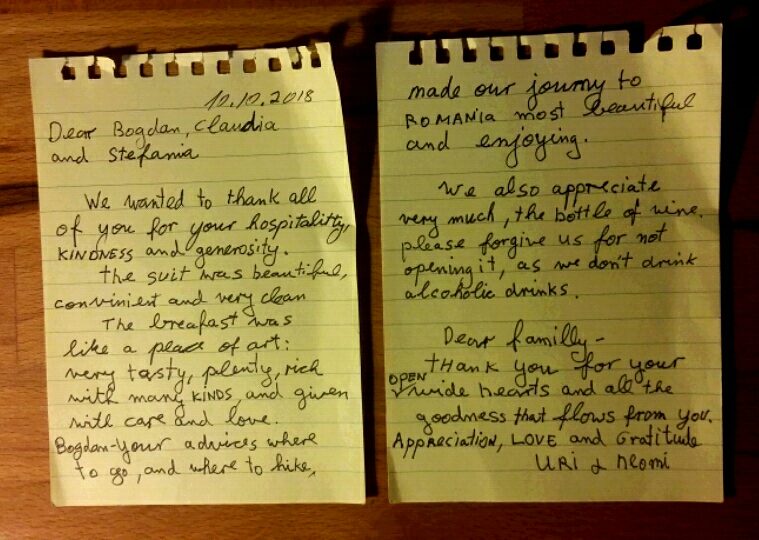 12.10.2018
Dear Bogdan, Claudia
and Stefania
We wanted to thank all
of you for your hospitalitty,
KINDNESS and generosity.
the suit was beautiful,
convinient and very clean
The breafast was
like a peace of art:
very tasty, plenty, rich
with many KINDS, and given
with care and love.
Bogdan-your advices where
to go, and where to hike,
made our journy to
ROMANIA most beautiful
and enjoying.
We also appreciate
very much, the bottle of wine.
please forgive us for not
opening it, as we don't drink
alcoholic drinks.
Dear familly-
tHank you for your
OPEN
wide hearts and all the
goodness that flows from you.
Appreciation, LOVE and Gratitude
URI & Neomi